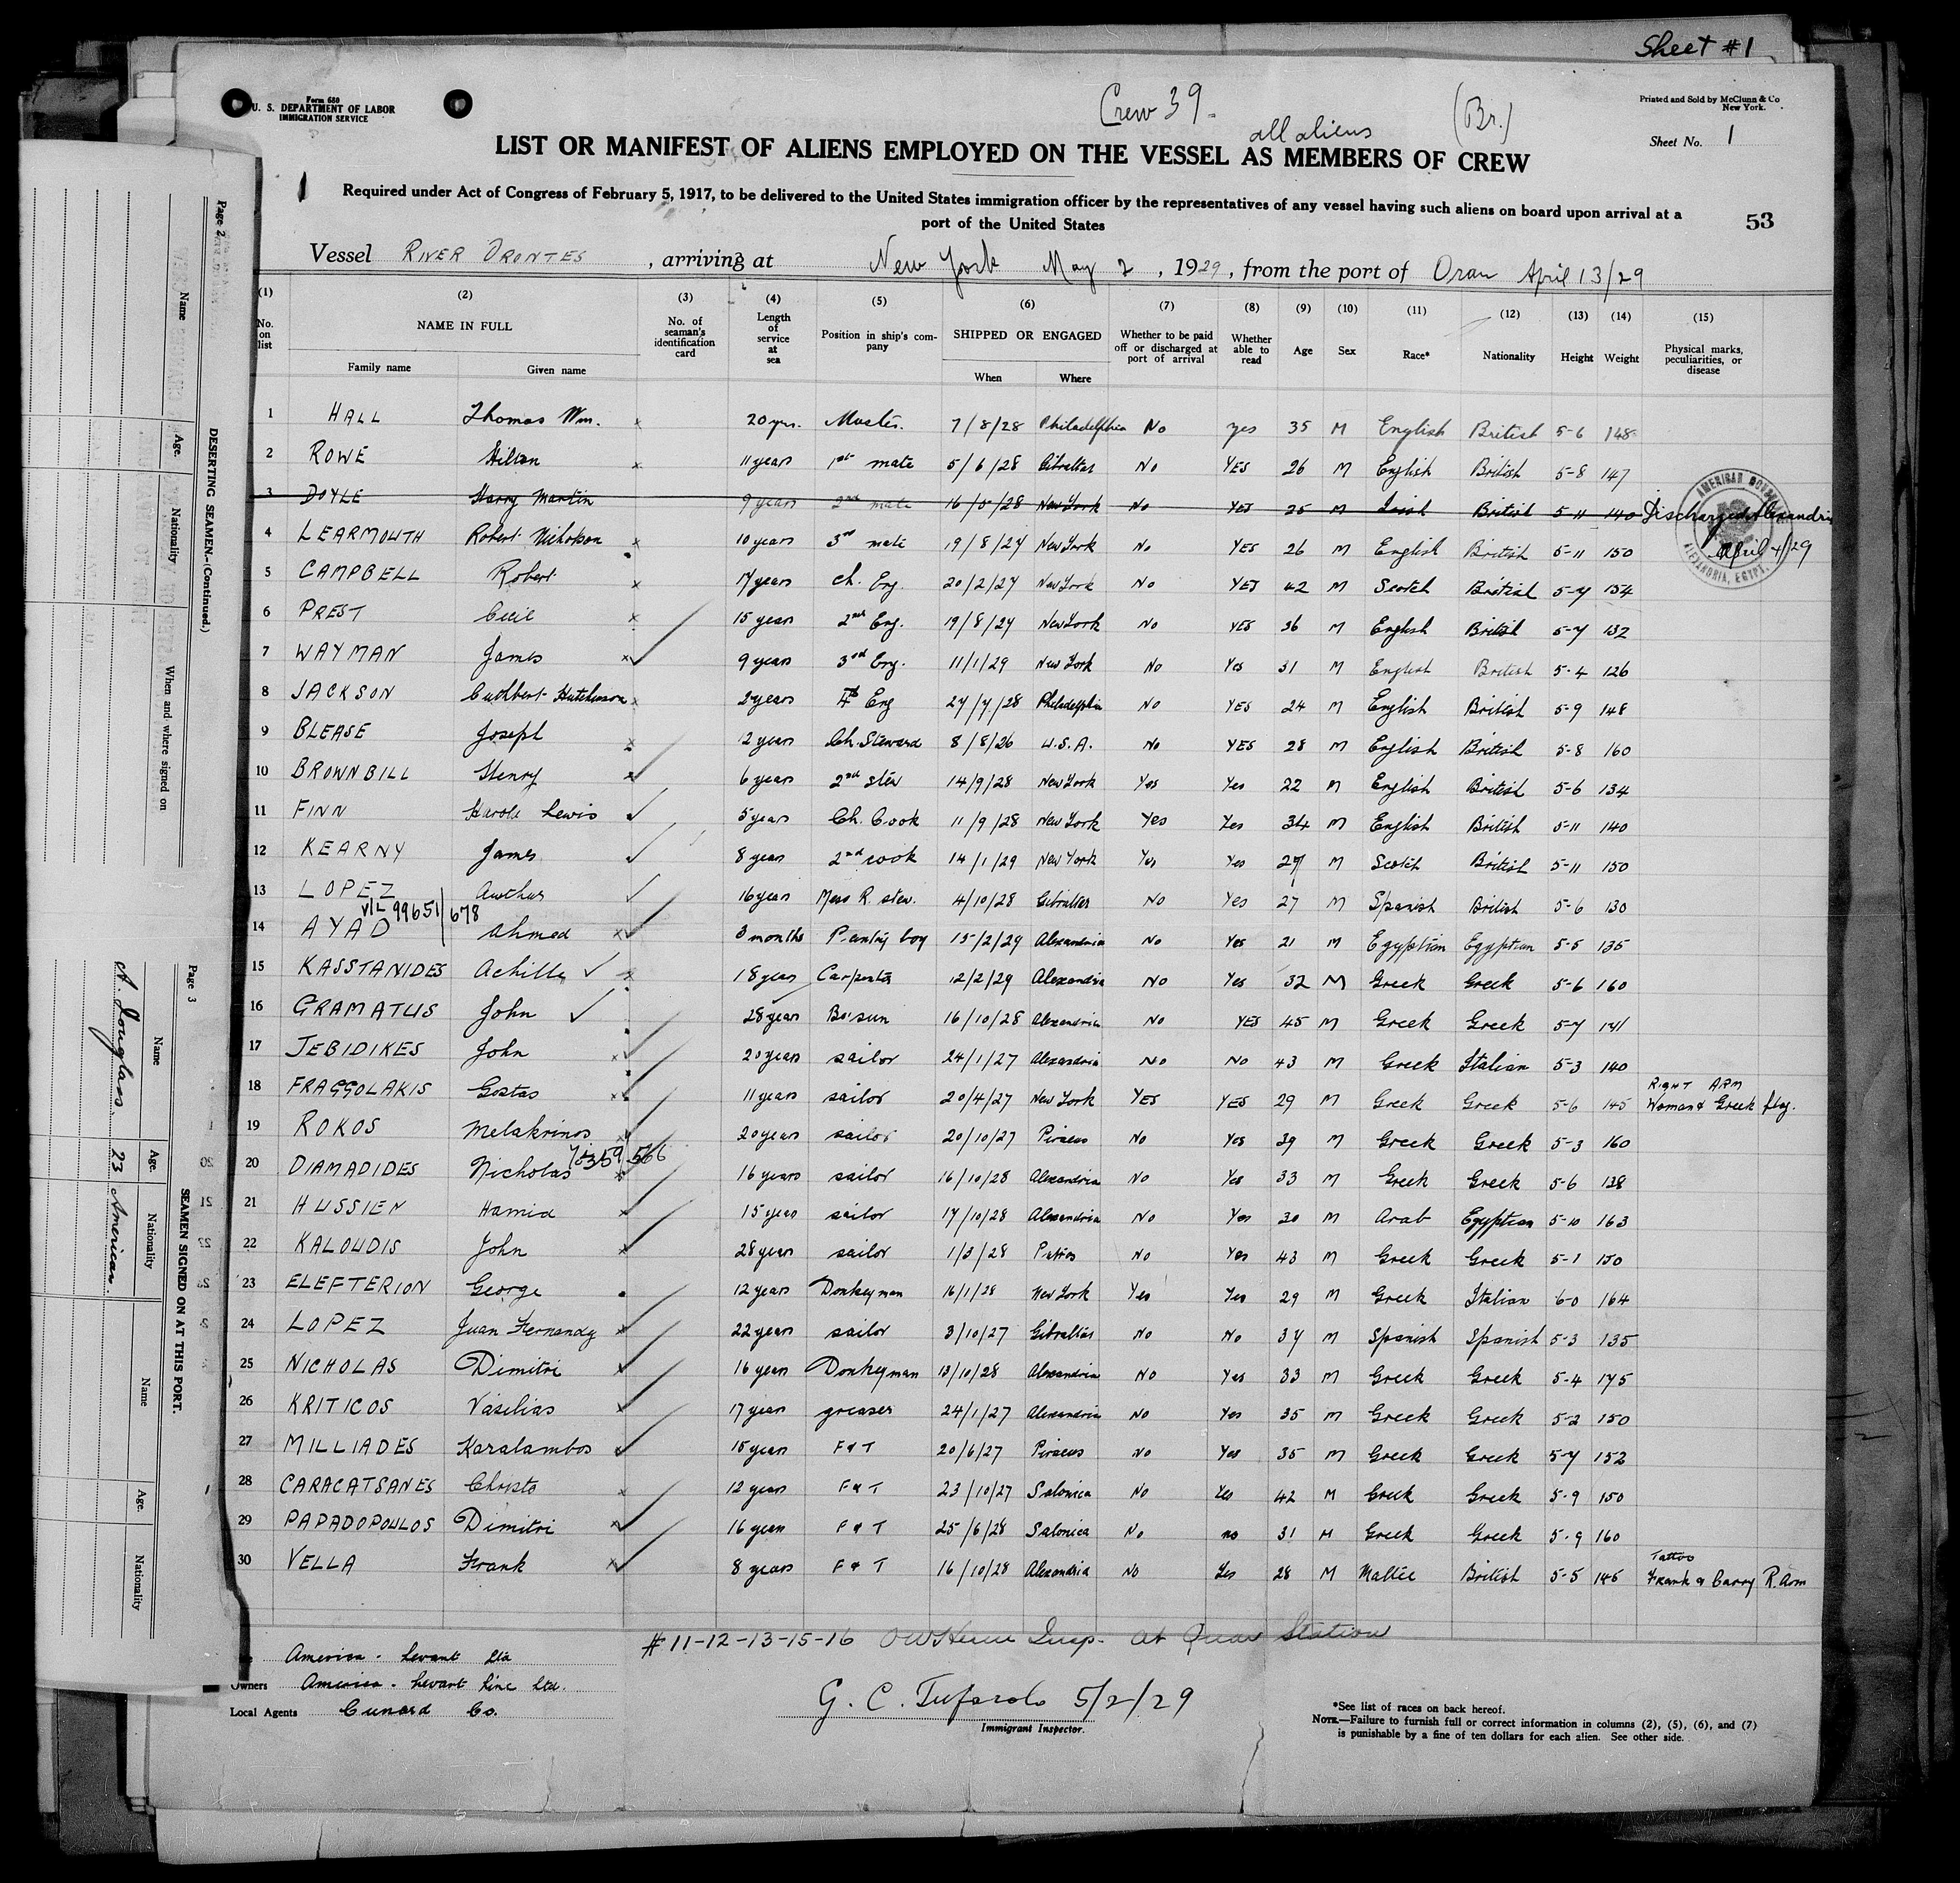 Sheet #1
Form 680
U. S. DEPARTMENT OF LABOR
IMMIGRATION SERVICE
Crew 39.
all aliens
(Br.)
Printed and Sold by McClunn & Co
New York.
Sheet No. 1
LIST OR MANIFEST OF ALIENS EMPLOYED ON THE VESSEL AS MEMBERS OF CREW
Required under Act of Congress of February 5, 1917, to be delivered to the United States immigration officer by the representatives of any vessel having such aliens on board upon arrival at a
port of the United States
53
Vessel RIVER ORONTES, arriving at New York May 2, 1929, from the port of Oran April 13/29
(1) (2) (3) (4) (5) (6) (7) (8) (9) (10) (11) (12) (13) (14) (15)
No. on list
NAME IN FULL
Family name Given name
No. of seaman's identification card
Length of service at sea
Position in ship's company
SHIPPED OR ENGAGED
When Where
Whether to be paid off or discharged at port of arrival
Whether able to read
Age
Sex
Race*
Nationality
Height
Weight
Physical marks, peculiarities, or disease
1 HALL Thomas Wm. x 20 yrs. Master. 7/8/28 Philadelphia No yes 35 M English British 5-6 148
2 ROWE Hilton x 11 years 1st mate 5/6/28 Gibraltar No YES 26 M English British 5-8 147
3 DOYLE Harry Martin 9 years 2nd mate 28 New York No YES 25 M Irish British 5-11 140 Discharged Alexandria
April 4/29
AMERICAN CONSULATE ALEXANDRIA, EGYPT.
4 LEARMOUTH Robert Nicholson x 10 years 3rd mate 19/8/27 New York No YES 26 M English British 5-11 150
5 CAMPBELL Robert x 17 years Ch. Eng. 20/2/27 New York No YES 42 M Scotch British 5-7 154
6 PREST Cecil x 15 years 2nd Eng. 19/8/27 New York No YES 36 M English British 5-7 132
7 WAYMAN James x 9 years 3rd Eng. 11/1/29 New York No Yes 31 M English British 5-4 126
8 JACKSON Cuthbert Hutchinson x 2 years 4th Eng 27/7/28 Philadelphia No YES 24 M English British 5-9 148
9 BLEASE Joseph x 2 years Ch. Steward 8/8/26 U.S.A. No YES 28 M English British 5-8 160
10 BROWNBILL Henry x 6 years 2nd stew 14/9/28 New York Yes Yes 22 M English British 5-6 134
11 FINN Harold Lewis ✓ 5 years Ch. Cook 11/9/28 New York Yes Yes 34 M English British 5-11 140
12 KEARNY James ✓ 8 years 2nd cook 14/1/29 New York Yes Yes 27 M Scotch British 5-11 150
13 LOPEZ Arthur ✓ 16 years Mess R. stew. 4/10/28 Gibraltar No Yes 27 M Spanish British 5-6 130
V/L 99651/678
14 AYAD Ahmed x 3 months Pantry boy 15/2/29 Alexandria No Yes 21 M Egyptian Egyptian 5-5 135
15 KASSTANIDES Achille ✓ x 18 years Carpenter 12/2/29 Alexandria No Yes 32 M Greek Greek 5-6 160
16 GRAMATUS John ✓ 28 years Bo'sun 16/10/28 Alexandria No YES 45 M Greek Greek 5-7 141
17 JEBIDIKES John x 20 years sailor 24/1/27 Alexandria No No 43 M Greek Italian 5-3 140
18 FRAGGOLAKIS Gostas x 11 years sailor 20/4/27 New York YES YES 29 M Greek Greek 5-6 145 RIGHT ARM
Woman & Greek flag.
19 ROKOS Melakrinos x 20 years sailor 20/10/27 Piraeus No Yes 39 M Greek Greek 5-3 160
20 DIAMADIDES Nicholas x 16 years sailor 16/10/28 Alexandria No Yes 33 M Greek Greek 5-6 138
21 HUSSIEN Hamid x 15 years sailor 17/10/28 Alexandria No Yes 30 M Arab Egyptian 5-10 163
22 KALOUDIS John x 28 years sailor 1/3/28 Patras No Yes 43 M Greek Greek 5-1 150
23 ELEFTERION George 12 years Donkeyman 16/1/28 New York Yes Yes 29 M Greek Italian 6-0 164
24 LOPEZ Juan Fernandy x 22 years sailor 3/10/27 Gibraltar No No 37 M Spanish Spanish 5-3 135
25 NICHOLAS Dimitri x 16 years Donkeyman 13/10/28 Alexandria No Yes 33 M Greek Greek 5-4 175
26 KRITICOS Vasilias x 17 years greaser 24/1/27 Alexandria No Yes 35 M Greek Greek 5-2 150
27 MILLIADES Karalambos x 15 years F & T 20/6/27 Piraeus No Yes 35 M Greek Greek 5-7 152
28 CARACATSANES Christo x 12 years F & T 23/10/27 Salonica No Yes 42 M Greek Greek 5-9 150
29 PAPADOPOULOS Dimitri x 16 years F & T 25/6/28 Salonica No no 31 M Greek Greek 5-9 160
30 VELLA Frank x 8 years F & T 16/10/28 Alexandria No Yes 28 M Maltie British 5-5 145 Tattoo
Frank & Carry R. Arm
#11-12-13-15-16 Insp. at Quar Station
America - Levant Ltd
Owners America - Levant Line Ltd.
Local Agents Cunard Co.
G. C. Tufarolo 5/2/29
Immigrant Inspector.
*See list of races on back hereof.
NOTE.—Failure to furnish full or correct information in columns (2), (5), (6), and (7)
is punishable by a fine of ten dollars for each alien. See other side.
Page 2
DESERTING SEAMEN—(Continued.)
Name Age. Nationality When and where signed on
Page 3
SEAMEN SIGNED ON AT THIS PORT.
Name Age. Nationality Name Age. Nationality
A. Douglass. 23 American.